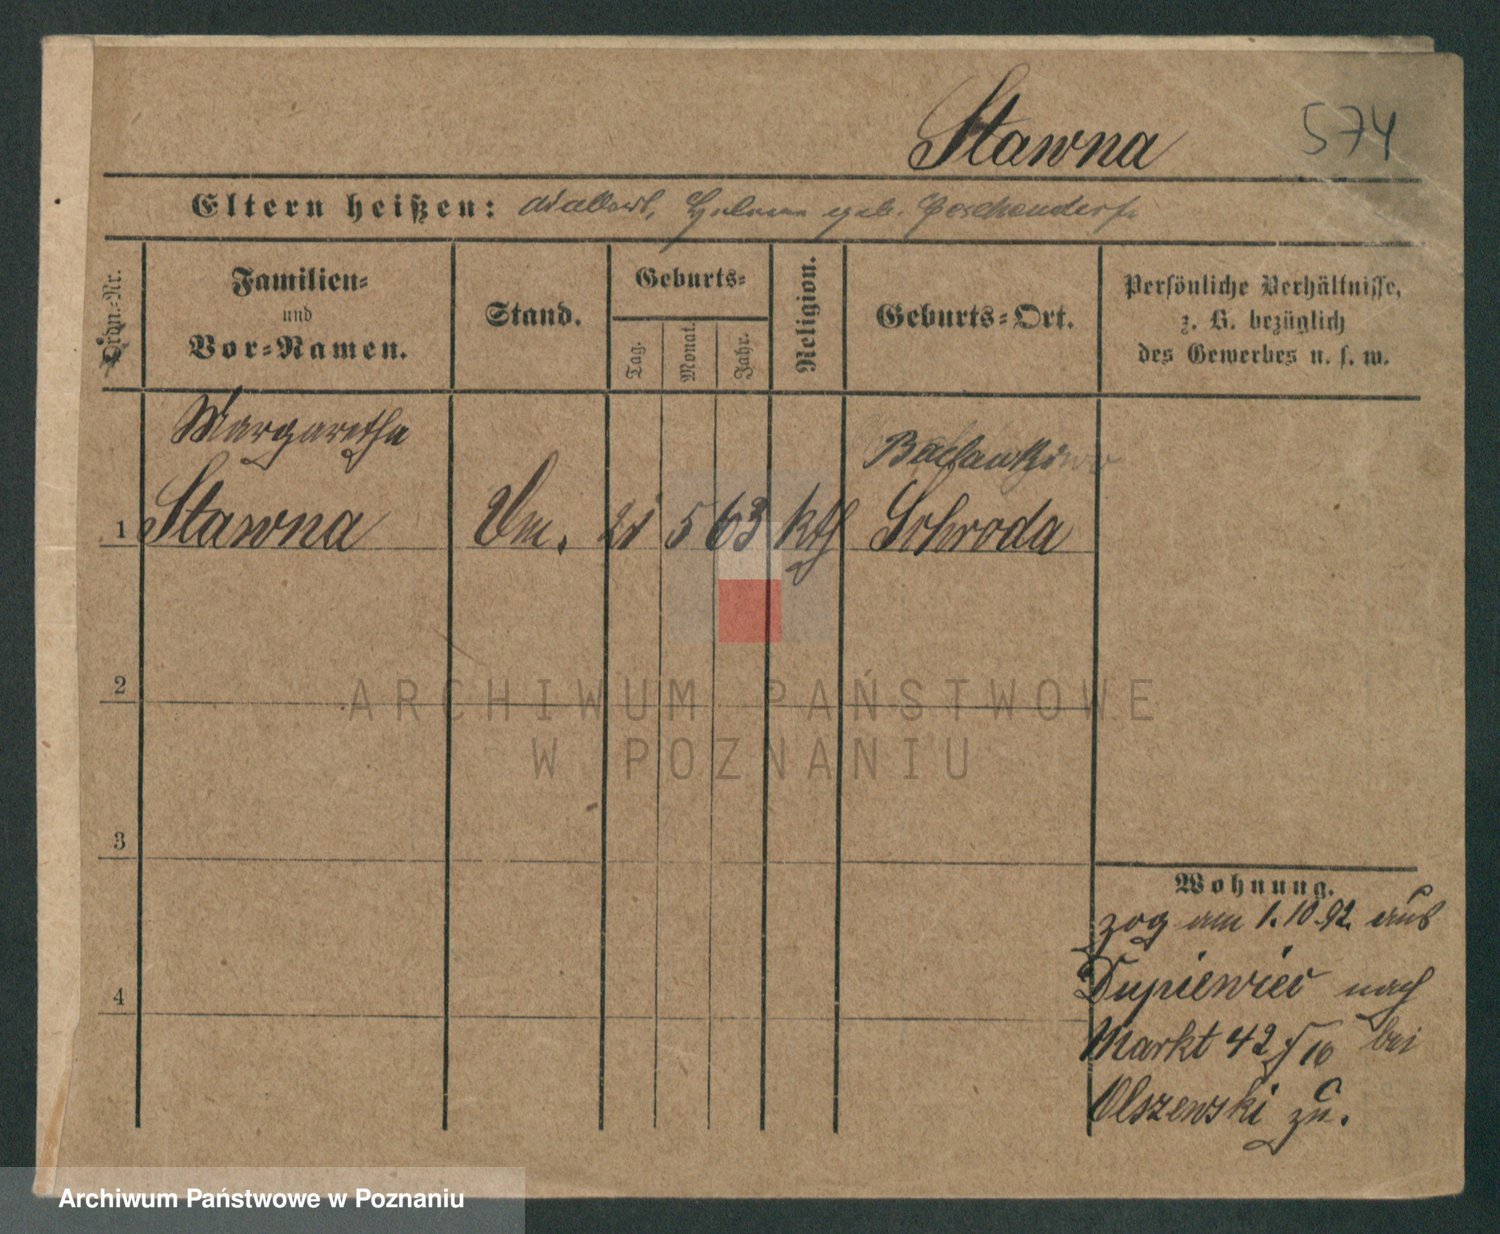 Stawna
574
Eltern heißen: Adalbert, Helene geb.
Ordn.-Nr.
Familien-
und
Vor-Namen.
Stand.
Geburts-
Tag.
Monat.
Jahr.
Religion.
Geburts-Ort.
Persönliche Verhältnisse,
z. B. bezüglich
des Gewerbes u. s. w.
Margaretha
1 Stawna
21 5 63 kth
Schroda
2
3
4
Wohnung.
zog am 1.10.92. aus
Dupiewiec nach
Markt 42 bei
Olszewski zu.
ARCHIWUM PAŃSTWOWE
W POZNANIU
Archiwum Państwowe w Poznaniu